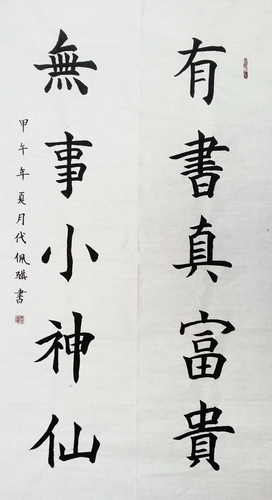 有書真富貴
無事小神仙
甲午年夏月代佩騏書